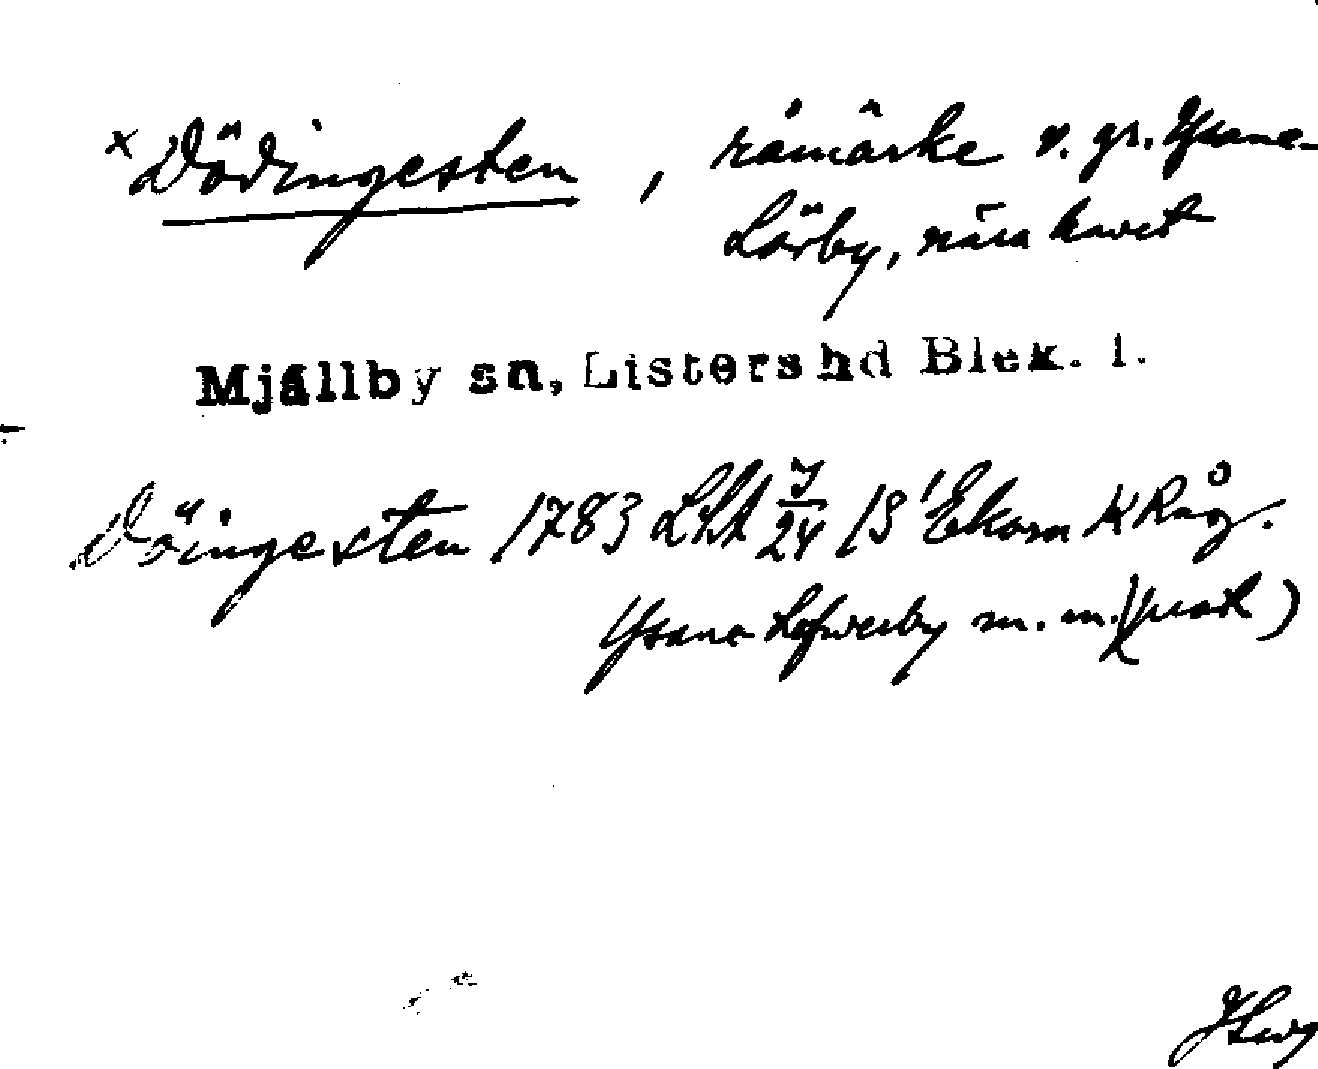 × Dödingesten, råmärke v. gr. Ysane-
Lörby, nära havet
Mjällby sn, Listers hd Blek. l.
Döingesten 1783 Lht 7/24 /S Ekorn KRåg.
Ysane Löfwerby m. m.